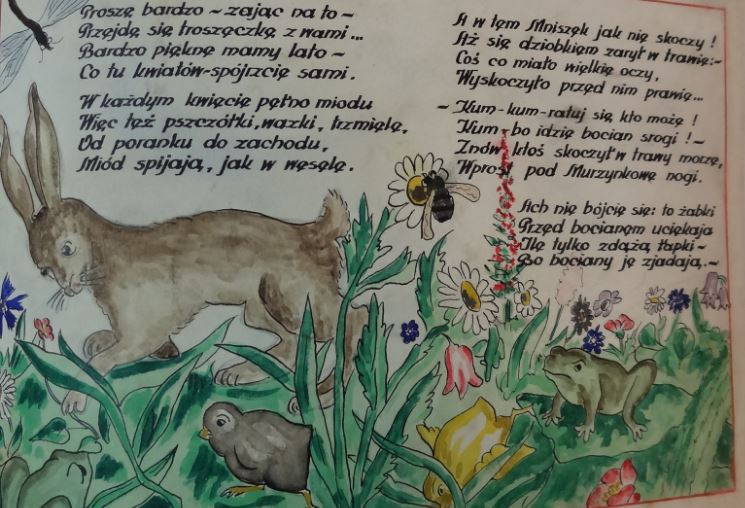 Proszę bardzo ~ zając na to ~
Przejdę się troszęczkę z wami...
Bardzo piękne mamy lato ~
Co tu kwiatów-spójrzcie sami.
W każdym kwiecie pełno miodu
Więc też pszczółki, ważki, trzmiele,
Od poranku do zachodu,
Miód spijają, jak w wesele.
A w tem Mniszek jak nie skoczy!
Aż się dziobkiem zarył w trawie:~
Coś co miało wielkie oczy,
Wyskoczyło przed nim prawie...
~ Kum-kum-ratuj się kto może!
Kum-bo idzie bocian srogi!~
Znów ktoś skoczył w trawy morze,
Wprost pod Murzynkowe nogi.
Ach nie bójcie się: to żabki
Przed bocianem uciekają
Ile tylko zdążą łapki ~
Bo bociany je zjadają.~